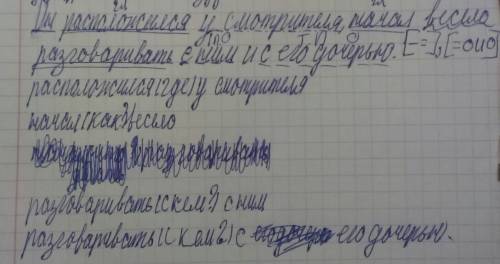 Он расположился у смотрителя, начал весело
разговаривать с ним и с его дочерью. [–=, и =оио]
расположился (где) у смотрителя
начал (как?) весело
разговаривать (с кем?) с ним
разговаривать (с кем?) с его дочерью.